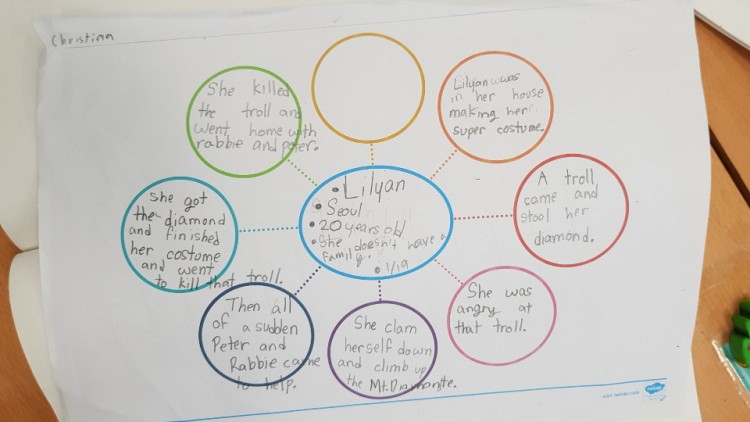 Christian
Lilyan
Seoul
20 years old
She doesn't have a
family.
1/19
Lilyan was
in her house
making her
super costume.
A troll
came and
stool her
diamond.
She was
angry at
that troll.
She clam
herself down
and climb up
the Mt.Diamonte.
Then all
of a sudden
Peter and
Rabbie came
to help.
She got
the diamond
and finished
her costume
and went
to kill that troll.
She killed
the troll and
went home with
rabbie and peter.
visit twinkl.com
twinkl